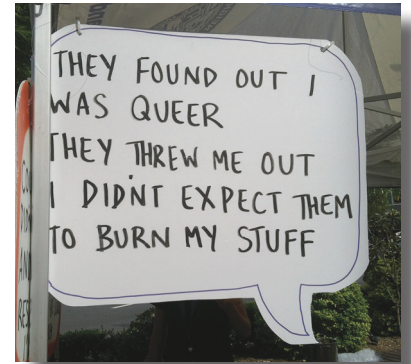 THEY FOUND OUT I
WAS QUEER
THEY THREW ME OUT
I DIDN'T EXPECT THEM
TO BURN MY STUFF